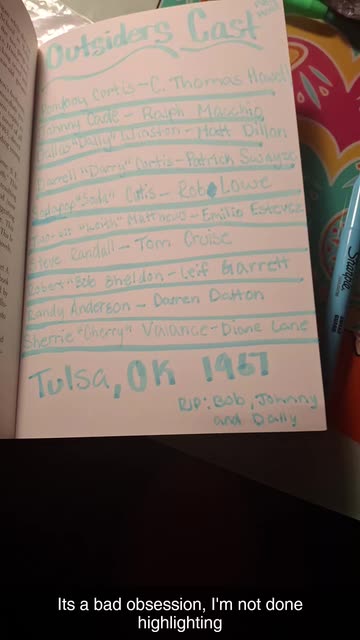 Outsiders Cast
Ponyboy Curtis - C. Thomas Howell
Johnny Cade - Ralph Macchio
Dallas "Dally" Winston - Matt Dillon
Darrell "Darry" Curtis - Patrick Swayze
Sodapop "Soda" Curtis - Rob Lowe
Two-Bit "Keith" Matthews - Emilio Estevez
Steve Randall - Tom Cruise
Robert "Bob" Sheldon - Leif Garrett
Randy Anderson - Darren Dalton
Sherrie "Cherry" Valance - Diane Lane
Tulsa, OK 1967
RIP: Bob, Johnny
and Dally
Sharpie
Its a bad obsession, I'm not done
highlighting